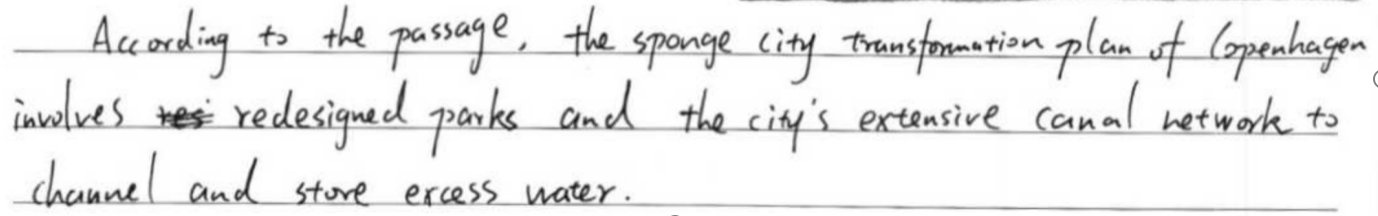 According to the passage, the sponge city transformation plan of Copenhagen
involves redesigned parks and the city's extensive canal network to
channel and store excess water.